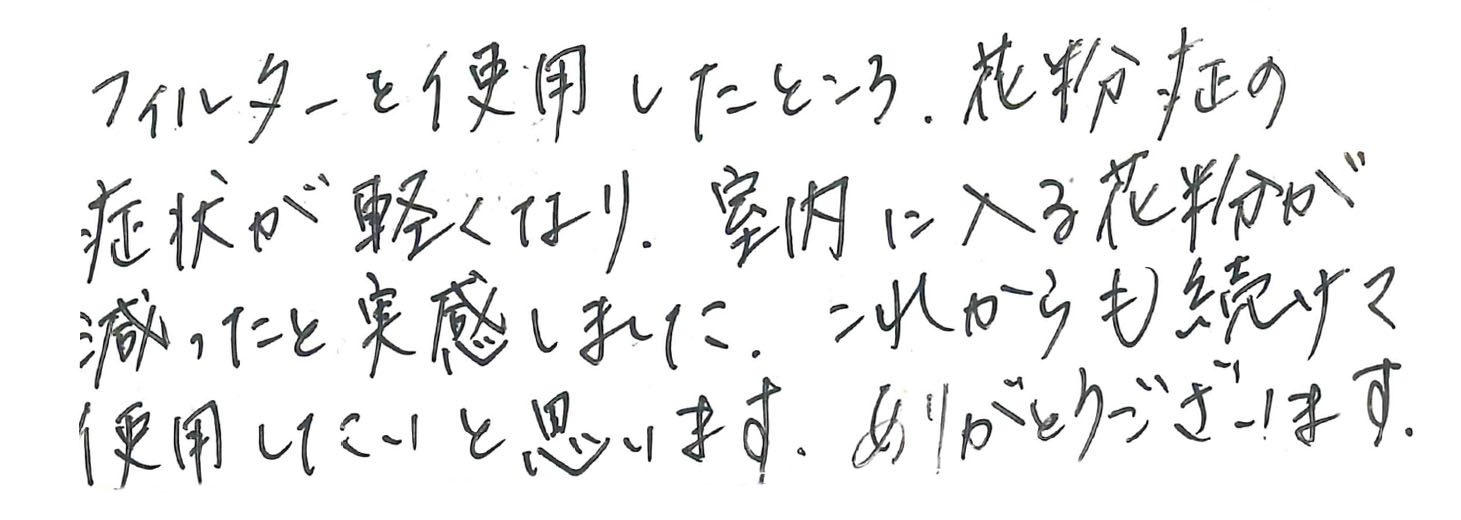 フィルターを使用したところ.花粉症の
症状が軽くなり.室内に入る花粉が
減ったと実感しました.これからも続けて
使用したいと思います.ありがとうございます.